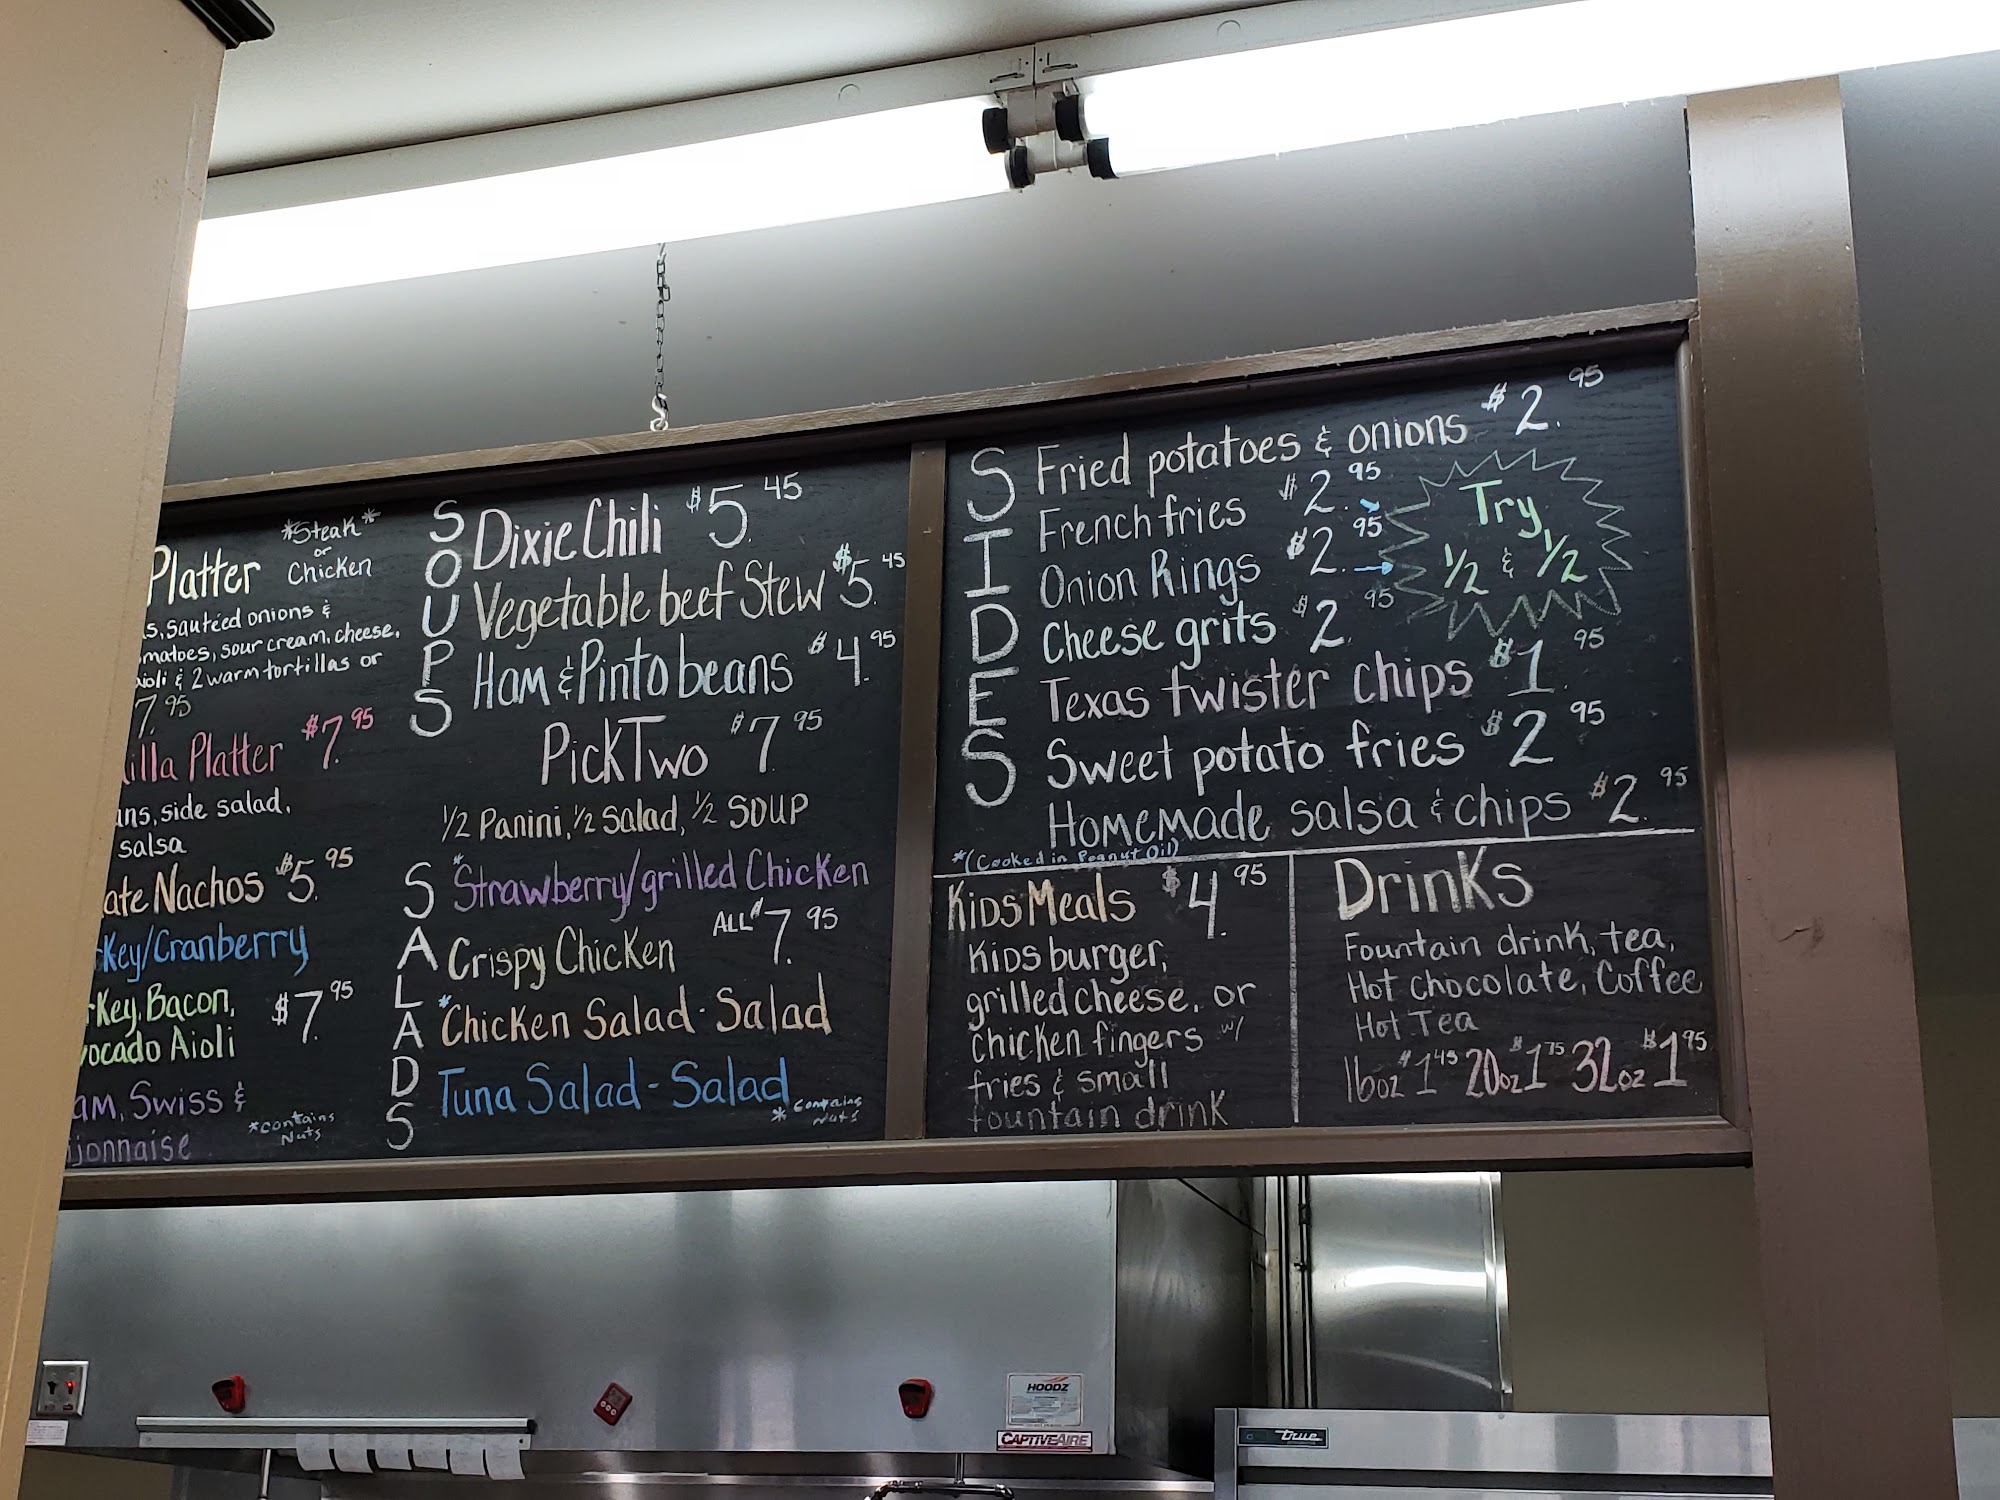 Platter *Steak*
or
Chicken
sautéed onions &
sour cream, cheese,
& 2 warm tortillas or
7.95
Platter $7.95
side salad,
salsa
Nachos $5.95
/Cranberry
Bacon, $7.95
Aioli
Swiss &
*contains
Nuts
SOUPS
Dixie Chili $5.45
Vegetable beef Stew $5.45
Ham & Pinto beans $4.95
Pick Two $7.95
1/2 Panini, 1/2 Salad, 1/2 SOUP
SALADS
*Strawberry/grilled Chicken
ALL $7.95
Crispy Chicken
*Chicken Salad-Salad
Tuna Salad-Salad
*contains
Nuts
SIDES
Fried potatoes & onions $2.95
French fries $2.95
Onion Rings $2.95
Try
1/2 & 1/2
Cheese grits $2.95
Texas twister chips $1.95
Sweet potato fries $2.95
Homemade salsa & chips $2.95
*(Cooked in Peanut Oil)
Kids Meals $4.95
Kids burger,
grilled cheese, or
chicken fingers w/
fries & small
fountain drink
Drinks
Fountain drink, tea,
Hot chocolate, Coffee
Hot Tea
16oz $1.45 20oz $1.75 32oz $1.95
HOODZ
CAPTIVEAIRE
true